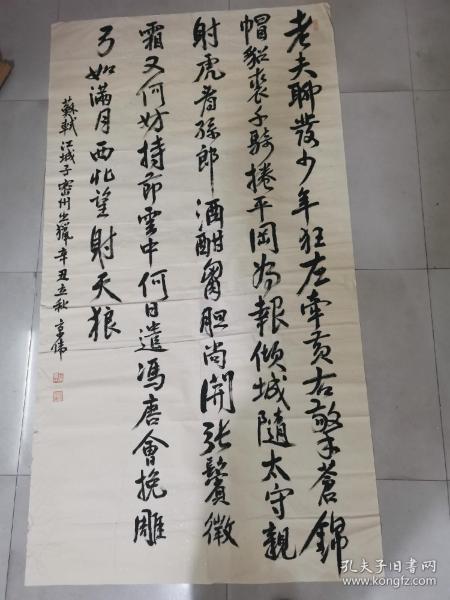 老夫聊發少年狂左牽黃右擎蒼錦
帽貂裘千騎捲平岡為報傾城隨太守親
射虎看孫郎酒酣胸膽尚開張鬢微
霜又何妨持節雲中何日遣馮唐會挽雕
弓如滿月西北望射天狼
蘇軾江城子密州出獵辛丑立秋
孔夫子旧书网
www.kongfz.com